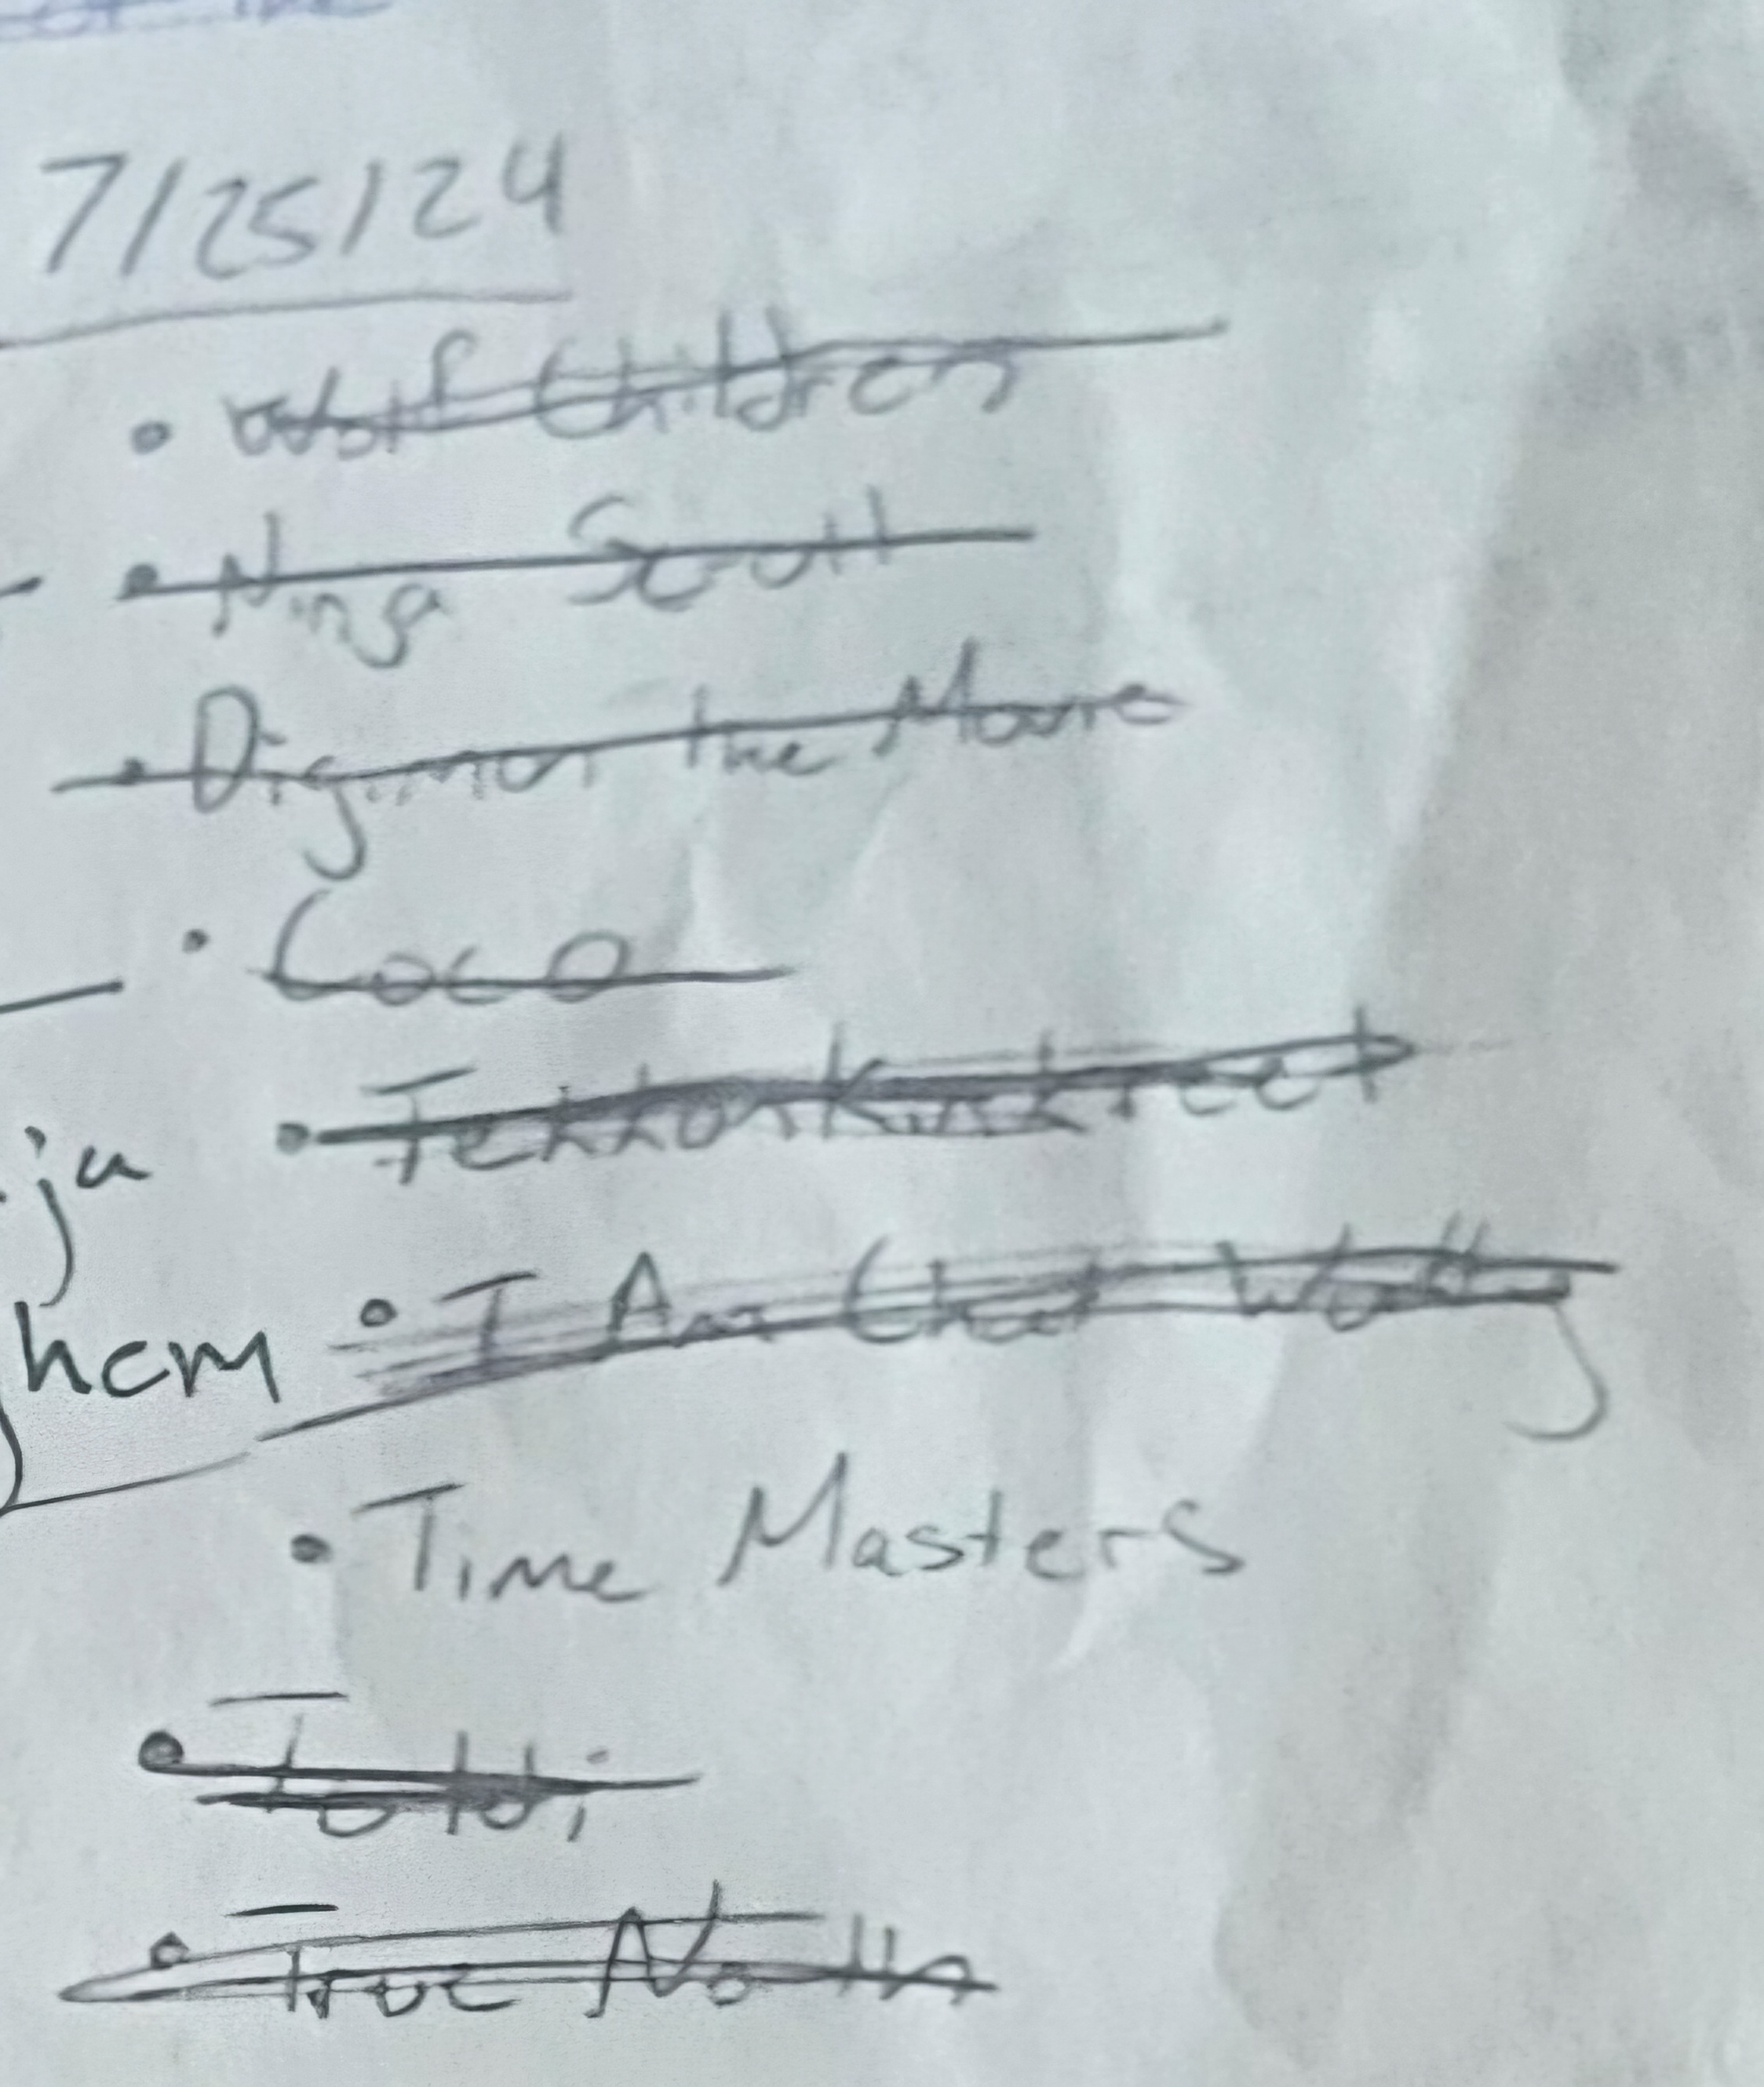 7/25/24
• Wolf Children
• Ninja Scroll
• Digimon the Movie
• Coco
• Tekkonkinkreet
ja
• I Am Chut Wutty
hem
• Time Masters
• Toldi
• True North